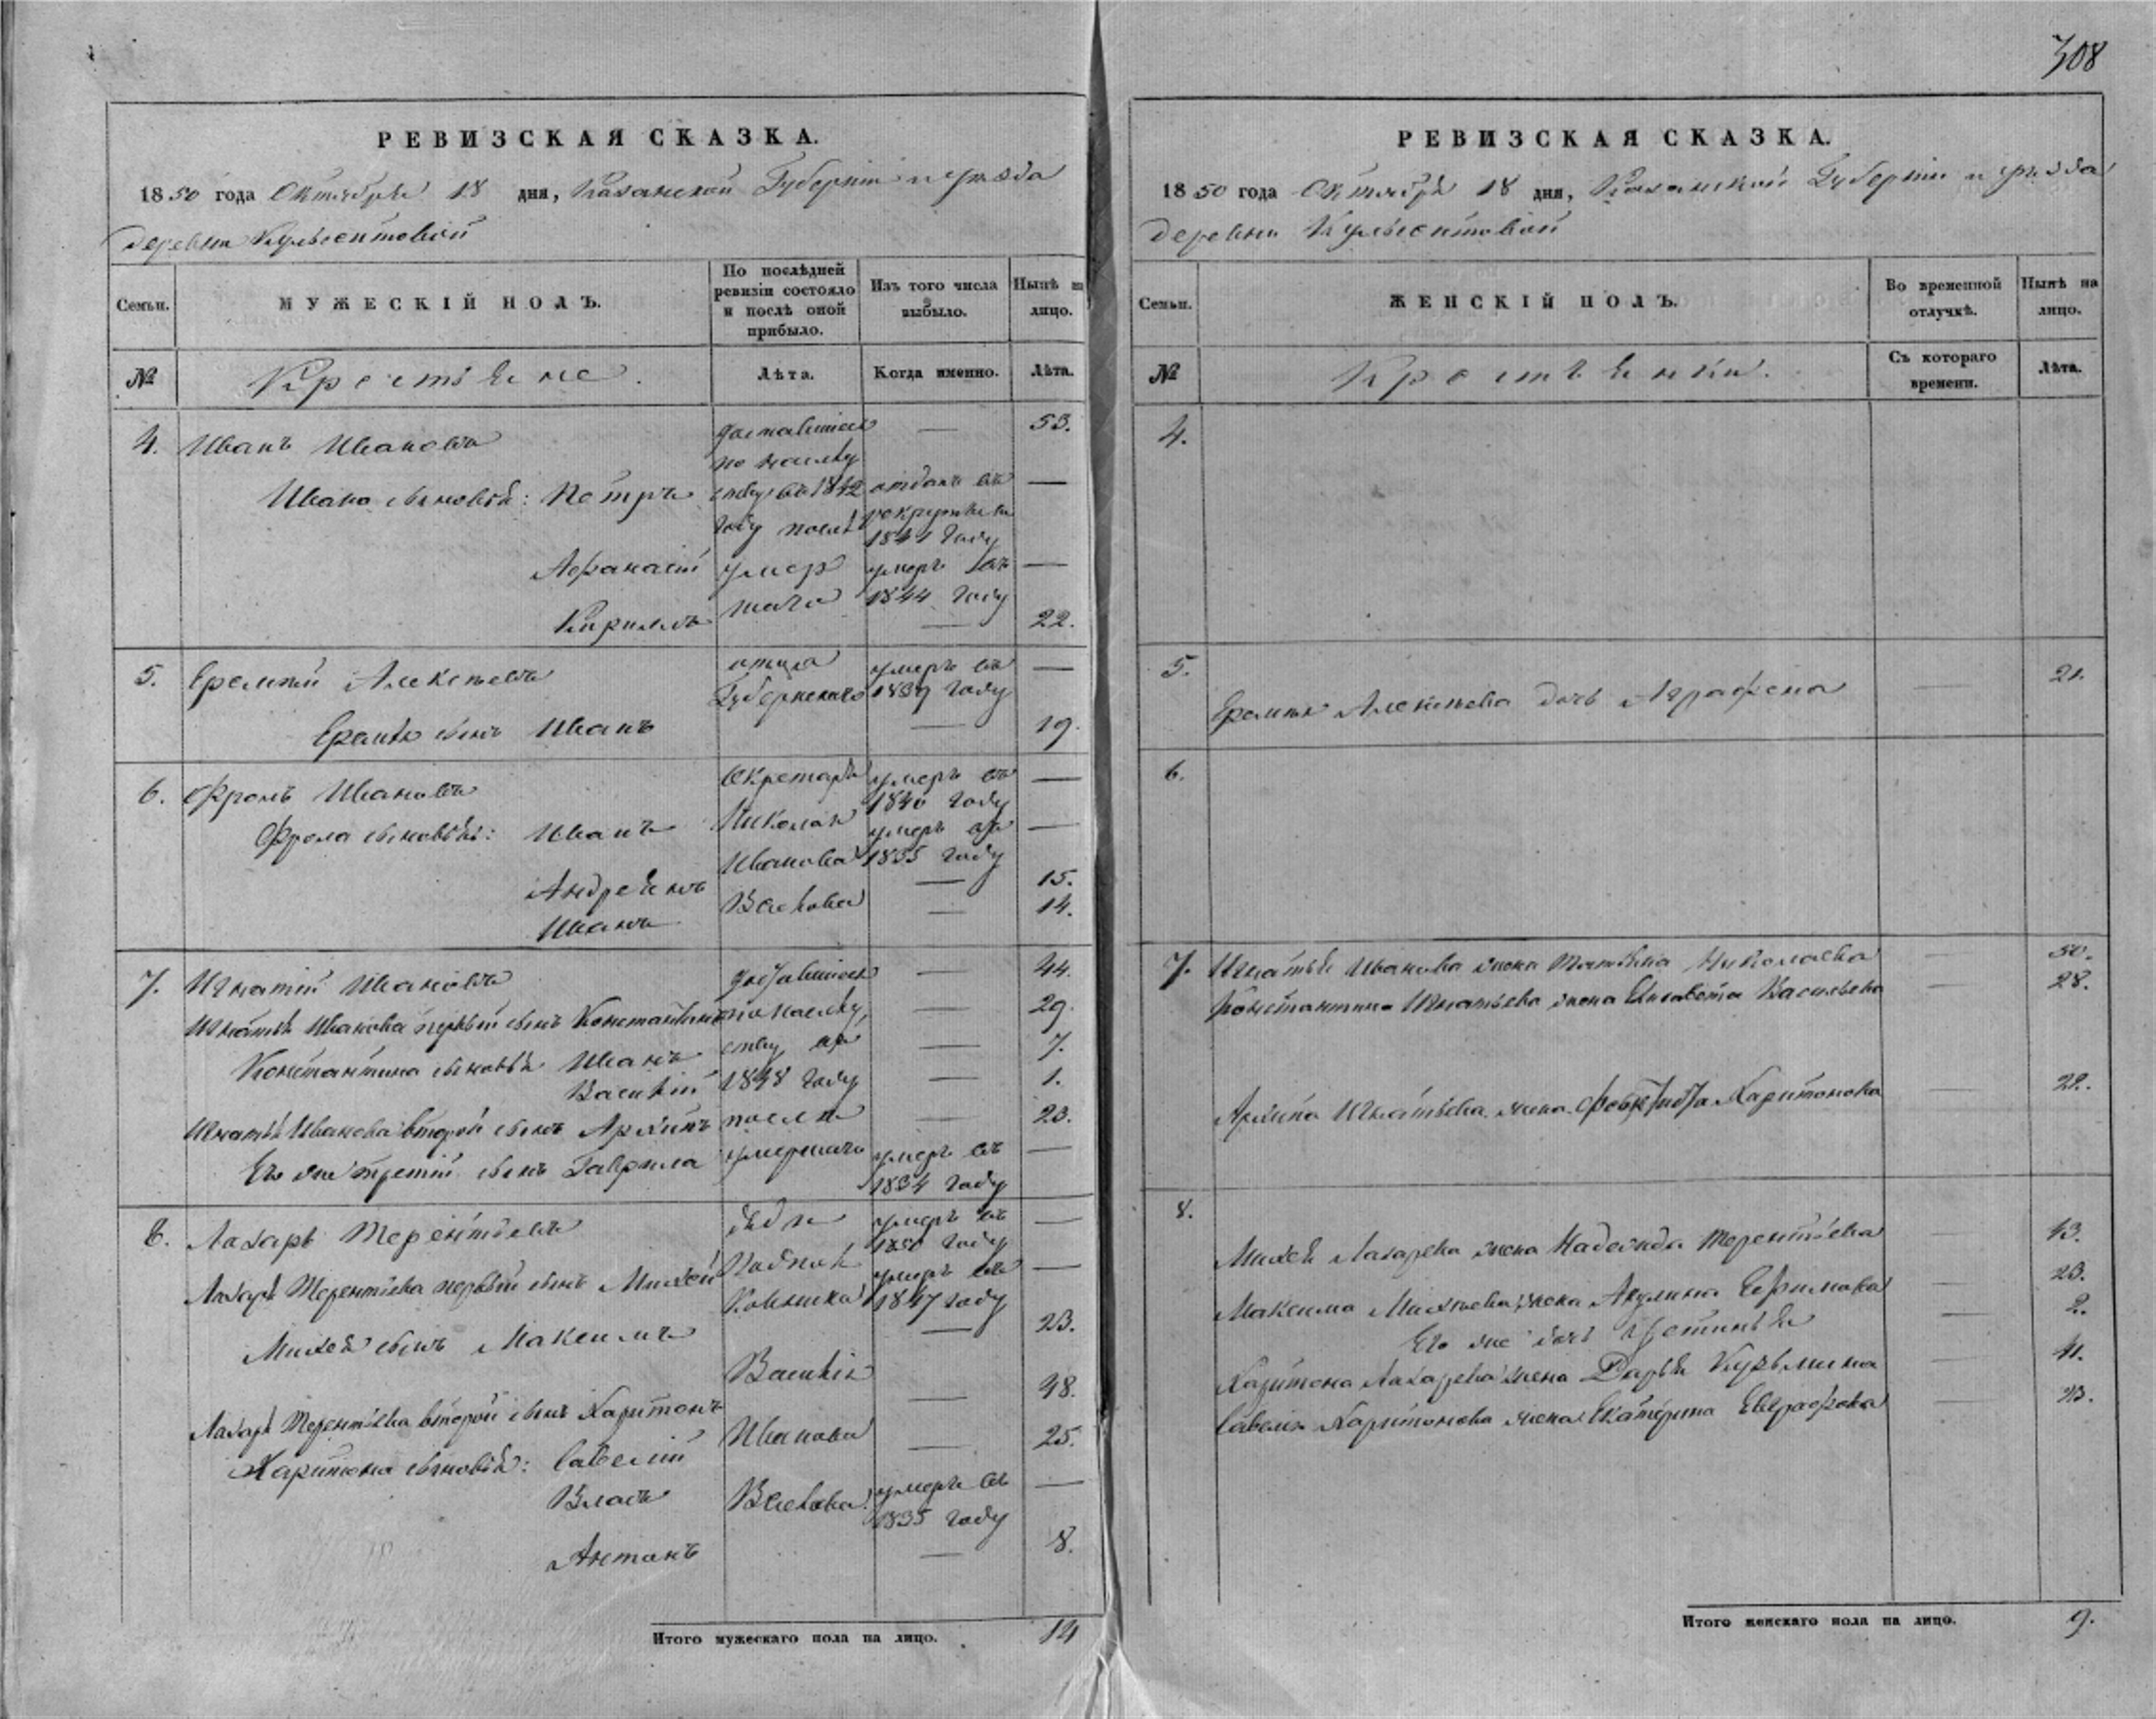 308
РЕВИЗСКАЯ СКАЗКА.
1850 года Октября 18 дня, Казанской Губерніи и уѣзда
деревни
Семьи.
МУЖЕСКІЙ ПОЛЪ.
По послѣдней ревизіи состояло и послѣ оной прибыло.
Изъ того числа выбыло.
Нынѣ на лицо.
№
Крестьяне.
Лѣта.
Когда именно.
Лѣта.
4. Иванъ Ивановъ доставшіеся — 53.
по наслѣд
Ивана сыновья: Петръ ству въ 1842 отданъ въ —
году послѣ рекруты въ
1841 году
Афанасій умер умеръ въ —
шаго 1844 году
Кириллъ — 22.
5. Еремѣй Алексѣевъ отца умеръ въ —
Губернскаго 1839 году
Еремѣя сынъ Иванъ — 19.
6. Фролъ Ивановъ Секретаря умеръ въ —
1840 году
Фрола сыновья: Иванъ Николая умеръ въ —
Иванова 1835 году
Андреянъ — 15.
Иванъ — 14.
7. Игнатій Ивановъ доставшіеся — 44.
Игнатья Иванова первый сынъ Константинъ по наслѣд — 29.
Константина сыновья Иванъ ству въ — 7.
Василій 1848 году — 1.
Игнатья Иванова второй сынъ Архипъ послѣ — 23.
Его же третій сынъ Гаврила умершаго умеръ въ —
1834 году
8. Лазарь Терентьевъ дѣда умеръ въ —
1850 году
Лазаря Терентьева первый сынъ Михей умеръ въ —
1847 году
Михея сынъ Максимъ — 23.
Василія
Лазаря Терентьева второй сынъ Харитонъ — 48.
Иванова
Харитона сыновья: Савелій — 25.
Власъ умеръ въ —
1835 году
Антонъ — 8.
Итого мужескаго пола на лицо. 14
РЕВИЗСКАЯ СКАЗКА.
1850 года Октября 18 дня, Казанской Губерніи и уѣзда
деревни
Семьи.
ЖЕНСКІЙ ПОЛЪ.
Во временной отлучкѣ.
Нынѣ на лицо.
№
Крестьянки.
Съ котораго времени.
Лѣта.
4.
5. — 21.
Еремѣя Алексѣева дочь Аграфена
6.
7. Игнатья Иванова жена Татьяна Николаева — 50.
Константина Игнатьева жена Елисавета Васильева — 28.
Архипа Игнатьева жена Харитонова — 22.
8.
Михея Лазарева жена Надежда Терентьева — 43.
Максима Михѣева жена Акулина Ефимова — 23.
Его же дочь Устинья — 2.
Харитона Лазарева жена Дарья Кузьмина — 41.
Савелія Харитонова жена Екатерина Евграфова — 23.
Итого женскаго пола на лицо. 9.